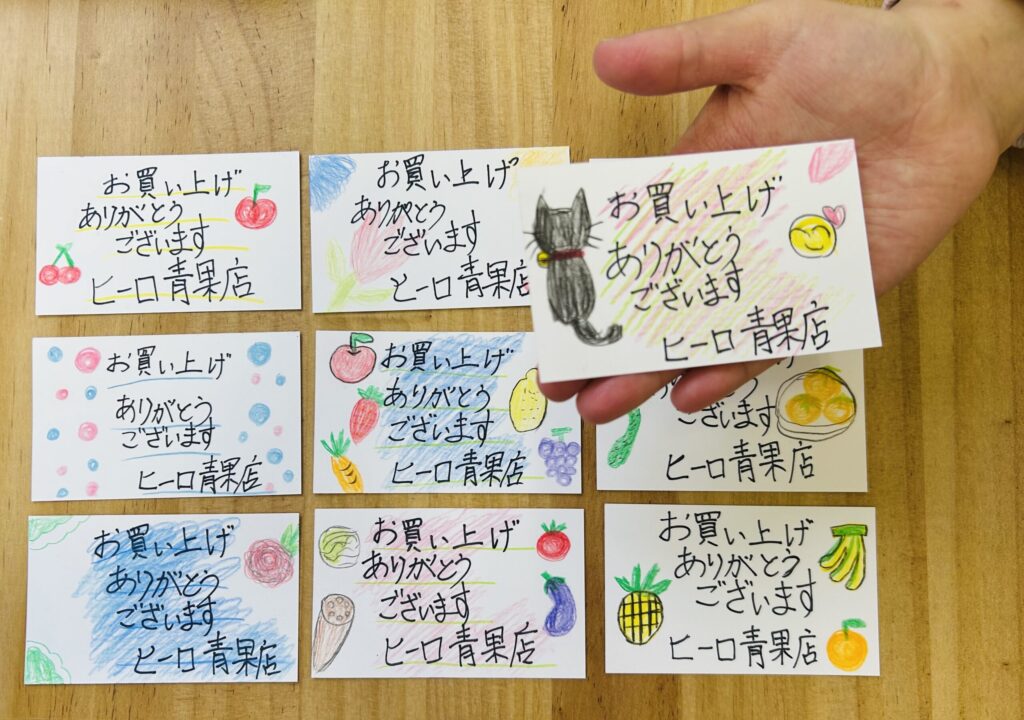 お買い上げ
ありがとう
ございます
ヒーロ青果店
お買い上げ
ありがとう
ございます
ヒーロ青果店
お買い上げ
ありがとう
ございます
ヒーロ青果店
お買い上げ
ありがとう
ございます
ヒーロ青果店
お買い上げ
ありがとう
ございます
ヒーロ青果店
ございます
ヒーロ青果店
お買い上げ
ありがとう
ございます
ヒーロ青果店
お買い上げ
ありがとう
ございます
ヒーロ青果店
お買い上げ
ありがとう
ございます
ヒーロ青果店